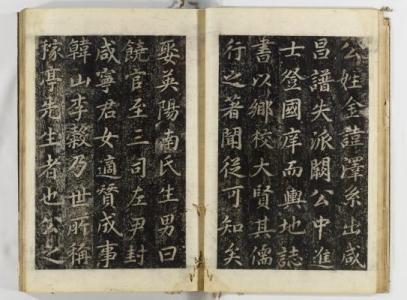 公姓金諱澤系出咸
昌譜失派闕公中進
士登國庠而輿地誌
書以鄉校大賢其儒
行之著聞從可知矣
娶英陽南氏生男曰
饒官至三司左尹封
咸寧君女適贊成事
韓山李穀乃世所稱
稼亭先生者也公之